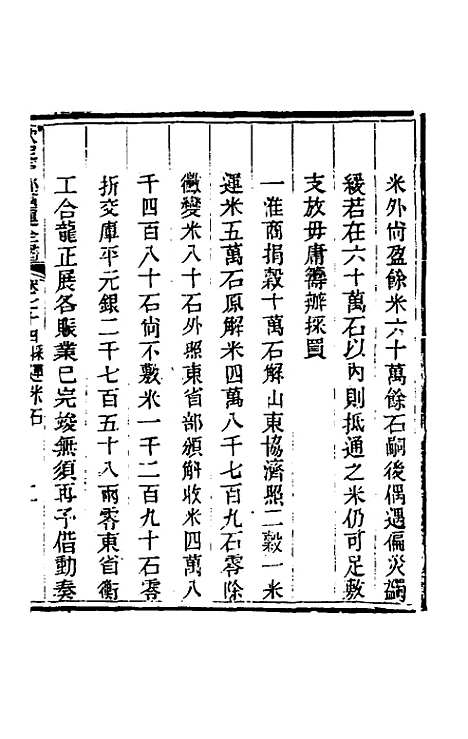 米外尙盈餘米六十萬餘石嗣後偶遇偏災蠲
緩若在六十萬石以內則抵通之米仍可足敷
支放毋庸籌辦採買
一淮商捐穀十萬石解山東協濟照二穀一米
運米五萬石原解米四萬八千七百九石零除
黴變米八十石外照東省部頒斛收米四萬八
千四百八十石尙不敷米一千二百九十石零
折交庫平元銀二千七百五十八兩零東省衡
工合龍正展各賬業已完竣無須再予借動奏
卷七十四採運米石